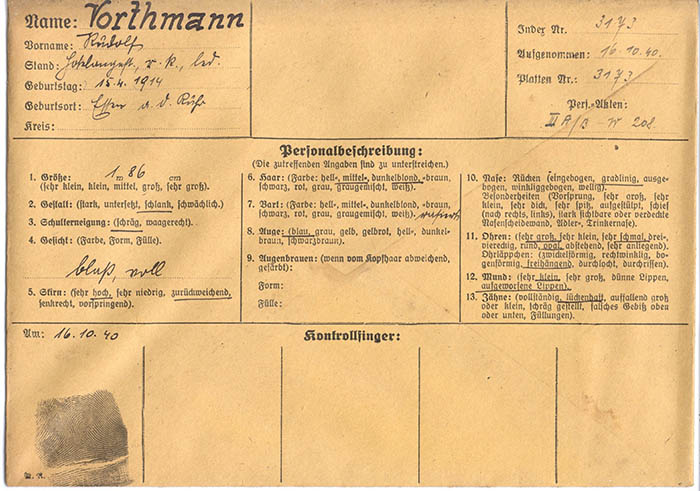 Name: Vorthmann
Vorname: Rudolf
Stand: Hotelangest., r. k., led.
Geburtstag: 15.4.1914
Geburtsort: Essen a. d. Ruhr
Kreis:
Index Nr. 3173
Aufgenommen: 16.10.40.
Platten Nr.: 3173
Pers.-Akten:
II A/B - W 208
Personalbeschreibung:
(Die zutreffenden Angaben sind zu unterstreichen.)
1. Größe: 1 m 86 cm
(sehr klein, klein, mittel, groß, sehr groß).
2. Gestalt: (stark, untersetzt, schlank, schwächlich).
3. Schulterneigung: (schräg, waagerecht).
4. Gesicht: (Farbe, Form, Fülle).
blaß voll
5. Stirn: (sehr hoch, sehr niedrig, zurückweichend,
senkrecht, vorspringend).
6. Haar: (Farbe: hell-, mittel-, dunkelblond, -braun,
schwarz, rot, grau, graugemischt, weiß).
7. Bart: (Farbe: hell-, mittel-, dunkelblond, -braun,
schwarz, rot, grau, graugemischt, weiß). rasiert
8. Auge: (blau, grau, gelb, gelbrot, hell-, dunkel-
braun, schwarzbraun).
9. Augenbrauen: (wenn vom Kopfhaar abweichend,
gefärbt):
Form:
Fülle:
10. Nase: Rücken (eingebogen, gradlinig, ausge-
bogen, winkliggebogen, wellig).
Besonderheiten (Vorsprung, sehr groß, sehr
klein, sehr dick, sehr spitz, aufgestülpt, schief
(nach rechts, links), stark sichtbare oder verdeckte
Nasenscheidewand, Adler-, Trinkernase).
11. Ohren: (sehr groß, sehr klein, sehr schmal, drei-
viereckig, rund, oval, abstehend, sehr anliegend).
Ohrläppchen: (zwickelförmig, rechtwinklig, bo-
genförmig, freihängend, durchlocht, durchrissen).
12. Mund: (sehr klein, sehr groß, dünne Lippen,
aufgeworfene Lippen).
13. Zähne: (vollständig, lückenhaft, auffallend groß
oder klein, schräg gestellt, falsches Gebiß oben
oder unten, Füllungen).
Am: 16.10.40
Kontrollfinger: